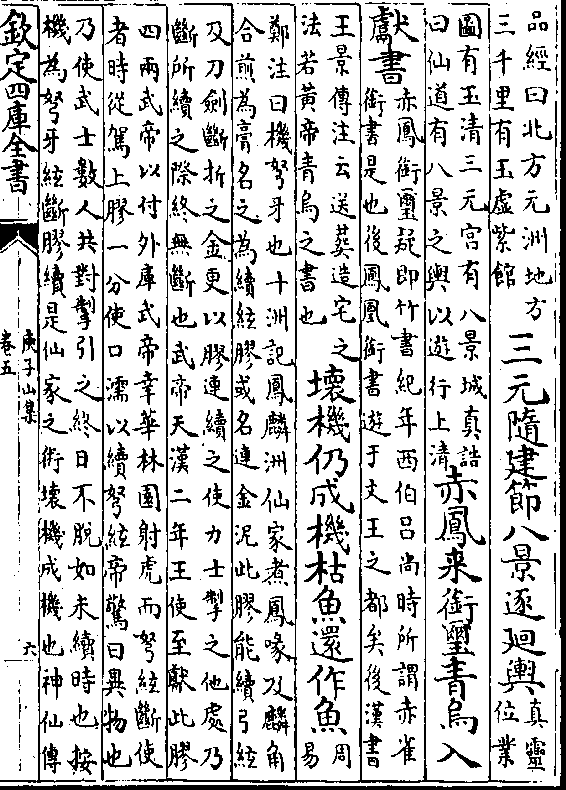 品經曰北方元洲地方
三千里有玉虛紫館
三元隨建節八景逐廻輿
真靈
位業
圖有玉清三元宮有八景城真誥
曰仙道有八景之輿以遊行上清
赤鳳来銜璽青烏入
獻書
赤鳳銜璽疑即竹書紀年西伯吕尚時所謂赤雀
銜書是也後鳳凰銜書遊于文王之都矣後漢書
王景傳注云送葬造宅之
法若黄帝青烏之書也
壞機仍成機枯魚還作魚
周
易
鄭注曰機弩牙也十洲記鳳麟洲仙家煮鳳喙及麟角
合煎為膏名之為續絃膠或名連金泥此膠能續弓絃
及刀劍斷折之金更以膠連續之使力士掣之他處乃
斷所續之際終無斷也武帝天漢二年王使至獻此膠
四兩武帝以付外庫武帝幸華林園射虎而弩絃斷使
者時從駕上膠一分使口濡以續弩絃帝驚曰異物也
乃使武士數人共對掣引之終日不脫如未續時也按
機為弩牙絃斷膠續是仙家之術壞機成機也神仙傳
欽定四庫全書
庾子山集
卷五
六